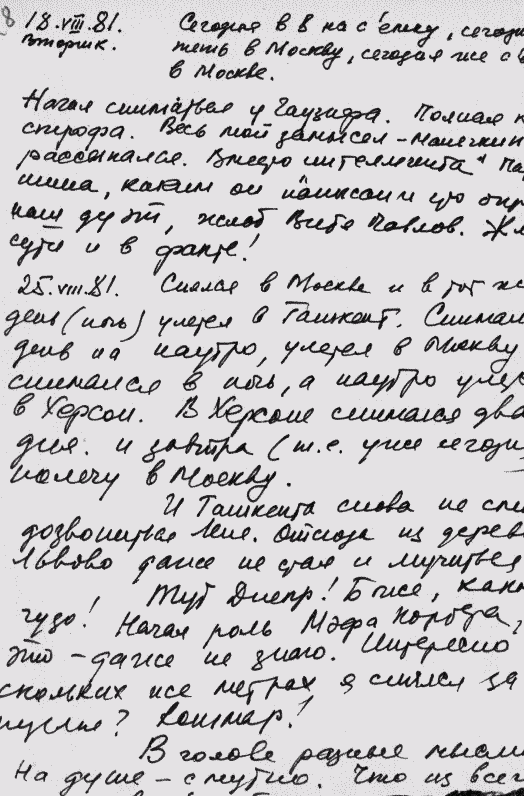 18.VIII.81. Сегодня в 8 на съёмку, сегодня
вторник. теть в Москву, сегодня же с
в Москве.
Начал сниматься у Гаузнера. Полная
строфа. Весь мой замысел –
рассыпался. Вместо интеллигента
шина, каким он написан и
наш дуэт, жлоб Витя Павлов.
сути и в факте!
25.VIII.81. Снялся в Москве и в тот же
день (ночь) улетел в Ташкент. Снимал
день на наутро, улетел в Москву
снимался в ночь, а наутро
в Херсон. В Херсоне снимался два
дня. и завтра (т.е. уже сегодня
полечу в Москву.
Из Ташкента снова не
дозвониться Лене. Отсюда из
Львово даже не стал и мучиться
Тут Днепр! Боже, какое
чудо! Начал роль Мэфа
это – даже не знаю. Интересно
скольких же метрах я снялся за
пусты? Кошмар!
В голове разные мысли
На душе – смутно. Что из всего